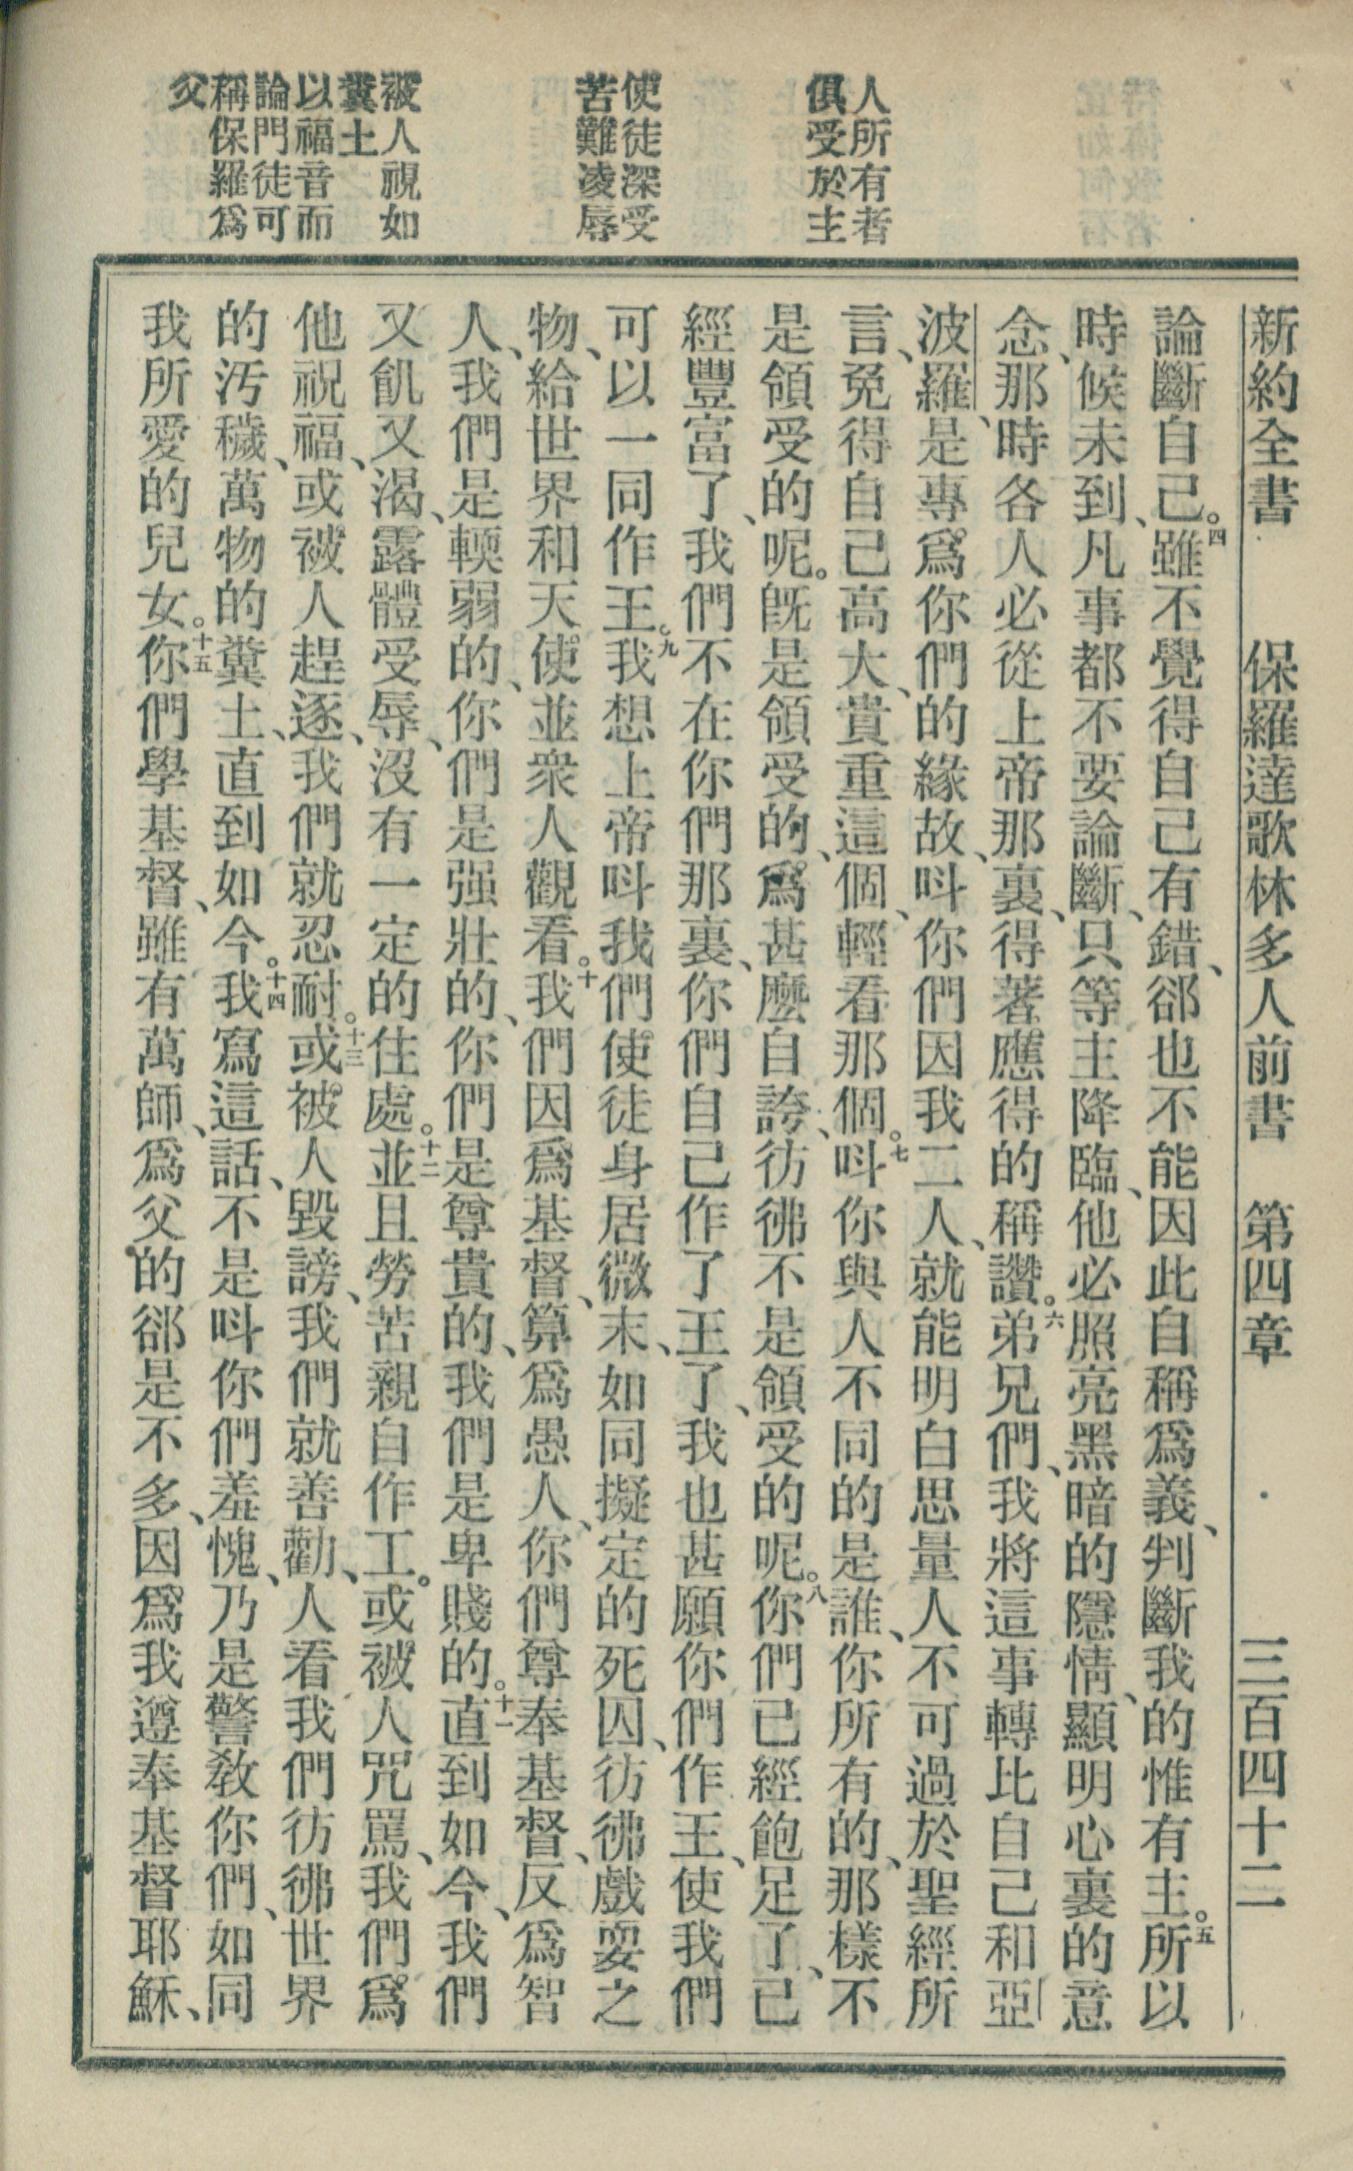 人所有者
俱受於主
使徒深受
苦難凌辱
被人視如
糞土
以福音而
論門徒可
稱保羅爲
父
新約全書　保羅達歌林多人前書　第四章　三百四十二
論斷自己。四雖不覺得自己有錯、卻也不能因此自稱爲義、判斷我的惟有主。五所以
時候未到、凡事都不要論斷、只等主降臨、他必照亮黑暗的隱情、顯明心裏的意
念、那時各人必從上帝那裏、得著應得的稱讚。六弟兄們、我將這事轉比自己和亞
波羅、是專爲你們的緣故、呌你們因我二人、就能明白思量人不可過於聖經所
言、免得自己高大、貴重這個、輕看那個。七呌你與人不同的是誰、你所有的、那樣不
是領受的呢。旣是領受的、爲甚麼自誇、彷彿不是領受的呢。八你們已經飽足了、已
經豐富了、我們不在你們那裏、你們自己作了王了、我也甚願你們作王、使我們
可以一同作王。九我想上帝呌我們使徒身居微末、如同擬定的死囚、彷彿戲耍之
物、給世界和天使並衆人觀看。十我們因爲基督、算爲愚人、你們尊奉基督、反爲智
人、我們是輭弱的、你們是强壯的、你們是尊貴的、我們是卑賤的。十一直到如今、我們
又飢又渴、露體受辱、沒有一定的住處。十二並且勞苦親自作工。或被人咒罵、我們爲
他祝福、或被人趕逐、我們就忍耐。十三或被人毀謗、我們就善勸、人看我們彷彿世界
的汚穢、萬物的糞土、直到如今。十四我寫這話、不是呌你們羞愧、乃是警敎你們、如同
我所愛的兒女。十五你們學基督、雖有萬師、爲父的卻是不多、因爲我遵奉基督耶穌、